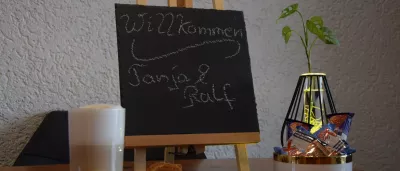 Willkommen
Tanja &
Ralf